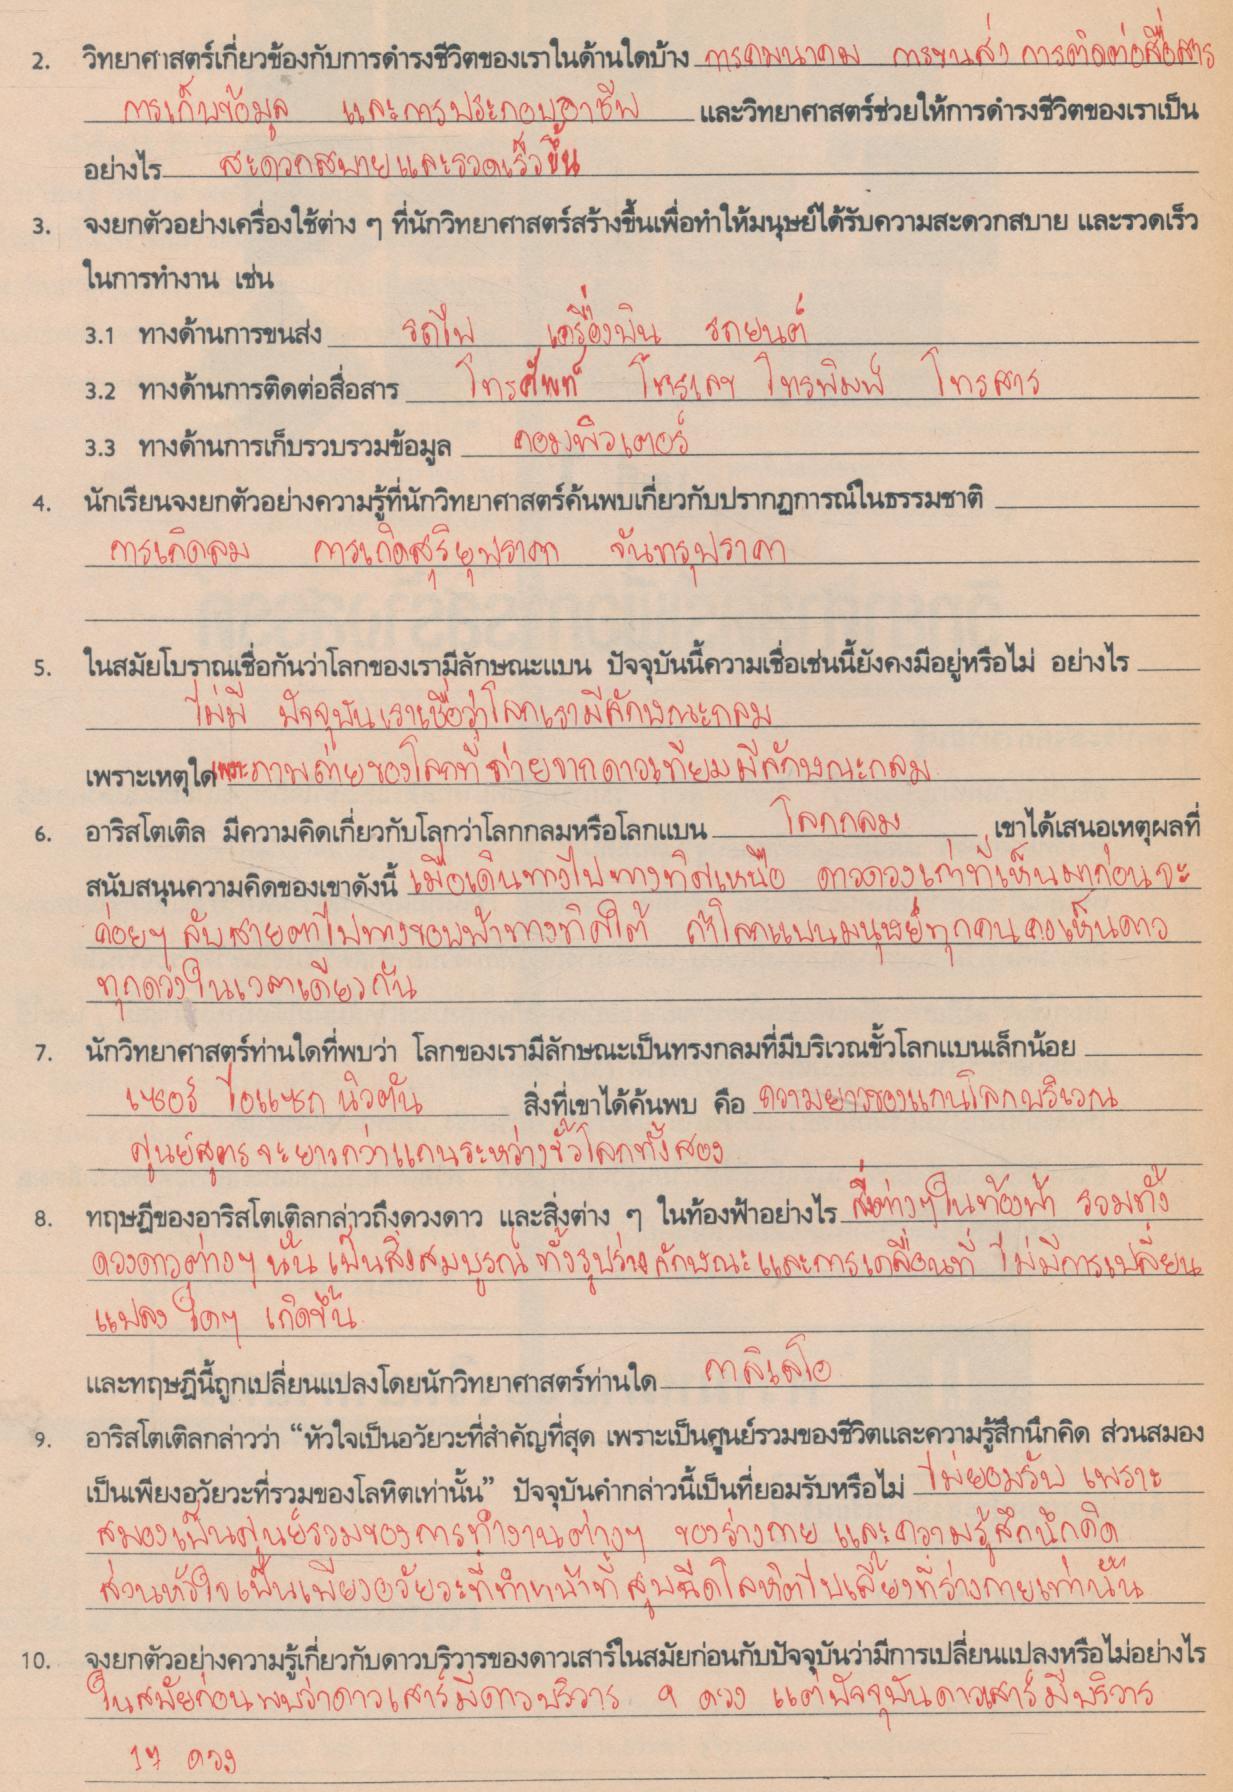 2. วิทยาศาสตร์เกี่ยวข้องกับการดำรงชีวิตของเราในด้านใดบ้าง การคมนาคม การขนส่ง การติดต่อสื่อสาร
การเก็บข้อมูล และการประกอบอาชีพ และวิทยาศาสตร์ช่วยให้การดำรงชีวิตของเราเป็น
อย่างไร สะดวกสบายและรวดเร็วขึ้น
3. จงยกตัวอย่างเครื่องใช้ต่าง ๆ ที่นักวิทยาศาสตร์สร้างขึ้นเพื่อทำให้มนุษย์ได้รับความสะดวกสบาย และรวดเร็ว
ในการทำงาน เช่น
3.1 ทางด้านการขนส่ง รถไฟ เครื่องบิน รถยนต์
3.2 ทางด้านการติดต่อสื่อสาร โทรศัพท์ โทรเลข โทรพิมพ์ โทรสาร
3.3 ทางด้านการเก็บรวบรวมข้อมูล คอมพิวเตอร์
4. นักเรียนจงยกตัวอย่างความรู้ที่นักวิทยาศาสตร์ค้นพบเกี่ยวกับปรากฏการณ์ในธรรมชาติ
การเกิดลม การเกิดสุริยุปราคา จันทรุปราคา
5. ในสมัยโบราณเชื่อกันว่าโลกของเรามีลักษณะแบน ปัจจุบันนี้ความเชื่อเช่นนี้ยังคงมีอยู่หรือไม่ อย่างไร
ไม่มี ปัจจุบันเราเชื่อว่าโลกเรามีลักษณะกลม
เพราะเหตุใด เพราะภาพถ่ายของโลกที่ถ่ายจากดาวเทียมมีลักษณะกลม
6. อาริสโตเติล มีความคิดเกี่ยวกับโลกว่าโลกกลมหรือโลกแบน โลกกลม เขาได้เสนอเหตุผลที่
สนับสนุนความคิดของเขาดังนี้ เมื่อเดินทางไปทางทิศเหนือ ดาวดวงเก่าที่เห็นมาก่อนจะ
ค่อยๆ ลับสายตาไปทางขอบฟ้าทางทิศใต้ ถ้าโลกแบนมนุษย์ทุกคนคงเห็นดาว
ทุกดวงในเวลาเดียวกัน
7. นักวิทยาศาสตร์ท่านใดที่พบว่า โลกของเรามีลักษณะเป็นทรงกลมที่มีบริเวณขั้วโลกแบนเล็กน้อย
เซอร์ ไอแซก นิวตัน สิ่งที่เขาได้ค้นพบ คือ ความยาวของแกนโลกบริเวณ
ศูนย์สูตรจะยาวกว่าแกนระหว่างขั้วโลกทั้งสอง
8. ทฤษฎีของอาริสโตเติลกล่าวถึงดวงดาว และสิ่งต่าง ๆ ในท้องฟ้าอย่างไร สิ่งต่างๆในท้องฟ้า รวมทั้ง
ดวงดาวต่างๆ นั้น เป็นสิ่งสมบูรณ์ ทั้งรูปร่าง ลักษณะและการเคลื่อนที่ ไม่มีการเปลี่ยน
แปลง ใดๆ เกิดขึ้น
และทฤษฎีนี้ถูกเปลี่ยนแปลงโดยนักวิทยาศาสตร์ท่านใด กาลิเลโอ
9. อาริสโตเติลกล่าวว่า “หัวใจเป็นอวัยวะที่สำคัญที่สุด เพราะเป็นศูนย์รวมของชีวิตและความรู้สึกนึกคิด ส่วนสมอง
เป็นเพียงอวัยวะที่รวมของโลหิตเท่านั้น” ปัจจุบันคำกล่าวนี้เป็นที่ยอมรับหรือไม่ ไม่ยอมรับ เพราะ
สมองเป็นศูนย์รวมของการทำงานต่างๆ ของร่างกาย และความรู้สึกนึกคิด
ส่วนหัวใจเป็นเพียงอวัยวะที่ทำหน้าที่สูบฉีดโลหิตไปเลี้ยงที่ร่างกายเท่านั้น
10. จงยกตัวอย่างความรู้เกี่ยวกับดาวบริวารของดาวเสาร์ในสมัยก่อนกับปัจจุบันว่ามีการเปลี่ยนแปลงหรือไม่อย่างไร
ในสมัยก่อนพบว่าดาวเสาร์มีดาวบริวาร 9 ดวง แต่ปัจจุบันดาวเสาร์มีบริวาร
17 ดวง